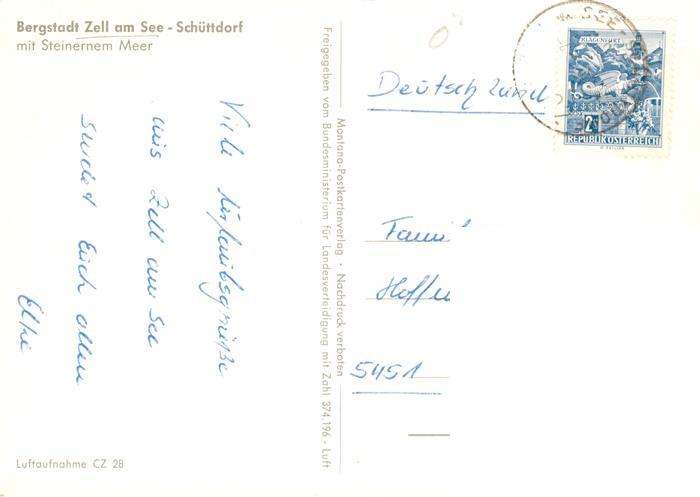 Bergstadt Zell am See - Schüttdorf
mit Steinernem Meer
Viele Urlaubsgrüße
aus Zell am See
sendet Euch allen
Elke
Luftaufnahme CZ 28
Freigegeben vom Bundesministerium für Landesverteidigung mit Zahl 374.196 - Luft
Montana-Postkartenverlag · Nachdruck verboten
Deutschland
KLAGENFURT
2S
REPUBLIK ÖSTERREICH
Fami
Hoffe
5451